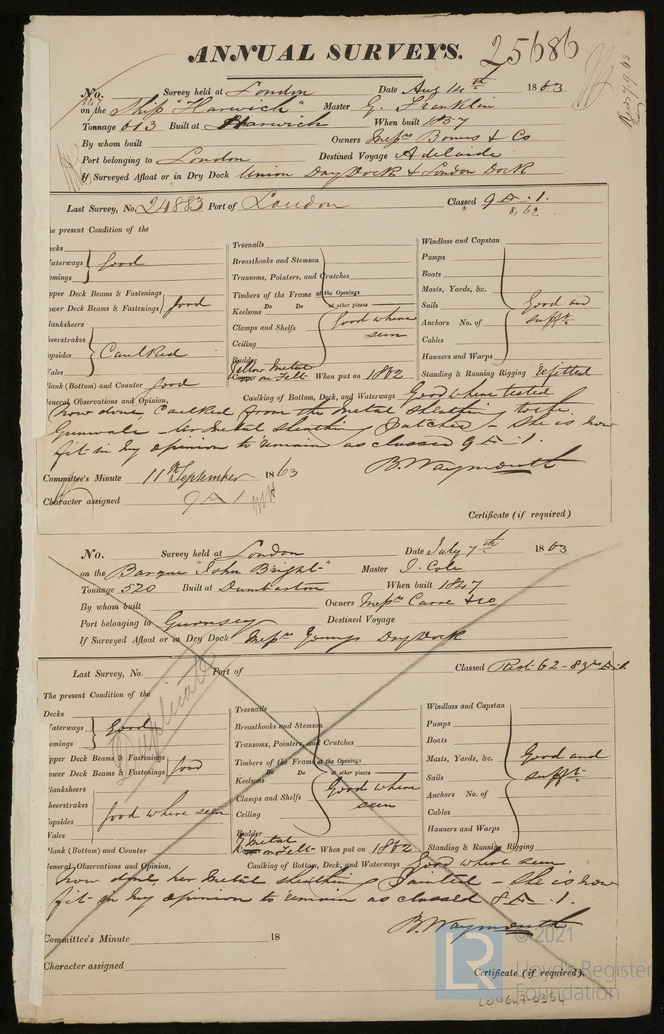 ANNUAL SURVEYS. 25686
No. Survey held at London Date Aug 14th 1863
on the Ship "Harwich" Master G. Franklin
Tonnage 613 Built at Harwich When built 1857
By whom built Owners Messrs Bonus & Co
Port belonging to London Destined Voyage Adelaide
If Surveyed Afloat or in Dry Dock Union Dry Dock & London Dock
Last Survey, No. 24883 Port of London Classed 9 A. 1.
8, 62
he present Condition of the
ecks
aterways } Good
omings
pper Deck Beams & Fastenings
ower Deck Beams & Fastenings } good
lanksheers
heerstrakes
opsides } Caulked
ales
lank (Bottom) and Counter good
Treenails
Breasthooks and Stemson
Transoms, Pointers, and Crutches
Timbers of the Frame at the Openings
Do Do at other places
Keelsons
Clamps and Shelfs Good where
Ceiling seen
Rudder
Yellow Metal
Copper on Felt When put on 1862
Windlass and Capstan
Pumps
Boats
Masts, Yards, &c.
Sails Good and
Anchors No. of sufft.
Cables
Hawsers and Warps
Standing & Running Rigging Refitted
Caulking of Bottom, Deck, and Waterways Good where tested
eneral Observations and Opinion,
now done, Caulked from the Metal Sheathing to the
Gunwale her Metal Sheathing patched – She is now
fit in my opinion to remain as classed 9 A. 1.
B. Waymouth
Committee's Minute 11th September 1863
Character assigned 9 A 1
Certificate (if required)
No. Survey held at London Date July 7th 1863
on the Barque "John Bright" Master J. Cole
Tonnage 520 Built at Dumbarton When built 1847
By whom built Owners Messrs Carre & Co
Port belonging to Guernsey Destined Voyage
If Surveyed Afloat or in Dry Dock Messrs Youngs Dry Dock
Last Survey, No. Port of Classed Rest. 62 - 8 yrs A. 1.
Duplicate
The present Condition of the
Decks
Waterways } Good
omings
pper Deck Beams & Fastenings
ower Deck Beams & Fastenings } good
lanksheers
heerstrakes
opsides } good where seen
Wales
Plank (Bottom) and Counter
Treenails
Breasthooks and Stemson
Transoms, Pointers, and Crutches
Timbers of the Frame at the Openings
Do Do at other places
Keelsons Good where
Clamps and Shelfs seen
Ceiling
Rudder
Y. Metal
on Felt When put on 1862
Windlass and Capstan
Pumps
Boats
Masts, Yards, &c. Good and
Sails sufft.
Anchors No. of
Cables
Hawsers and Warps
Standing & Running Rigging
Caulking of Bottom, Deck, and Waterways Good where seen
General Observations and Opinion,
now done, her Metal Sheathing painted – She is now
fit in my opinion to remain as classed 8 A. 1.
B. Waymouth
Committee's Minute 18
Character assigned
Certificate (if required).
LR © 2021
Lloyd's Register
Foundation
LON647-0354